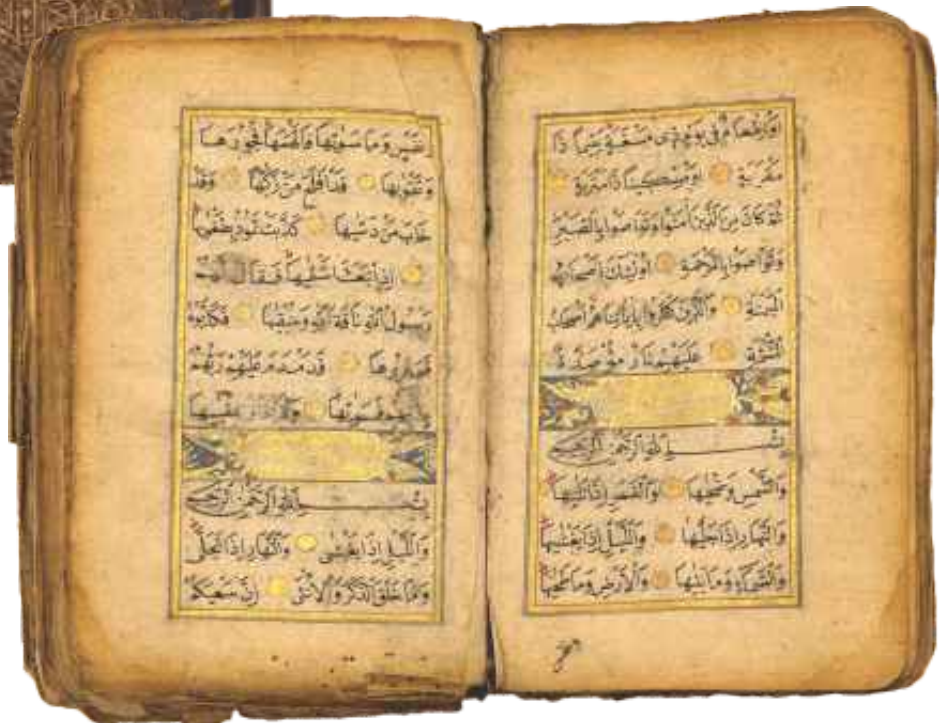 اوإطعام فى يوم ذى مسغبة يتيما ذا
مقربة اومسكينا ذا متربة
ثم كان من الذين امنوا وتواصوا بالصبر
وتواصوا بالمرحمة اولئك اصحاب
الميمنة والذين كفروا باياتنا هم اصحاب
المشئمة عليهم نار مؤصدة
بسم الله الرحمن الرحيم
والشمس وضحيها والقمر اذا تليها
والنهار اذا جليها والليل اذا يغشيها
والسماء وما بنيها والارض وما طحيها
ونفس وما سويها فالهمها فجورها
وتقويها قد افلح من زكيها وقد
خاب من دسيها كذبت ثمود بطغويها
اذ انبعث اشقيها فقال لهم
رسول الله ناقة الله وسقيها فكذبوه
فعقروها فدمدم عليهم ربهم
بذنبهم فسويها ولا يخاف عقبيها
بسم الله الرحمن الرحيم
والليل اذا يغشى والنهار اذا تجلى
وما خلق الذكر والانثى ان سعيكم